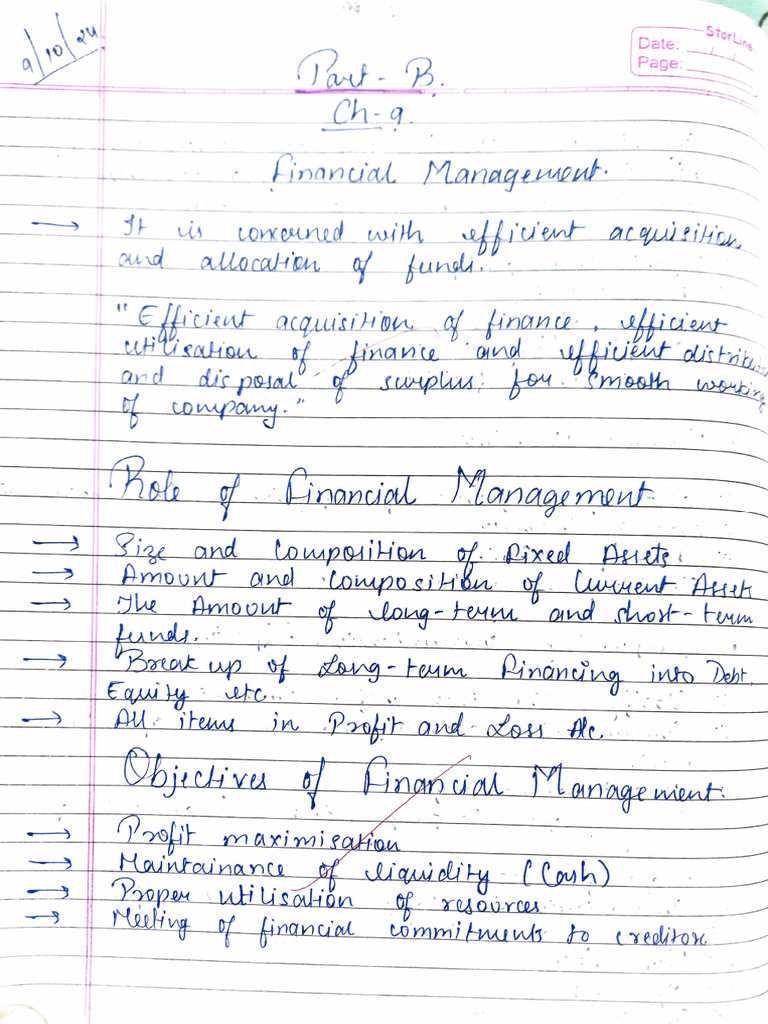 9/10/24
StarLine
Date:
Page:
Part - B.
Ch-9.
Financial Management.
→ It is concerned with efficient acquisition
and allocation of funds.
"Efficient acquisition of finance, efficient
utilisation of finance and efficient
and disposal of surplus for smooth working
of company."
Role of Financial Management
→ Size and Composition of Fixed Assets.
→ Amount and Composition of Current Asset
→ The Amount of long-term and short-term
funds.
→ Break up of Long-term Financing into Debt,
Equity etc.
→ All items in Profit and Loss A/c.
Objectives of Financial Management.
→ Profit maximisation
→ Maintainance of liquidity (Cash)
→ Proper utilisation of resources
→ Meeting of financial commitments to creditors